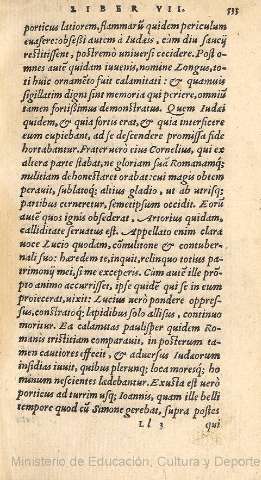 LIBER VII. 535
porticus latiorem, flammarũ quidem periculum
euasere: obseßi autem à Iudeis, cùm diu saucij
restitissent, postremò uniuersi cecidere. Post o-
mnes autẽ quidam iuuenis, nomine Longus, to-
ti huic ornamẽto fuit calamitati: & quamuis
sigillatim digni sint memoria qui periere, omniũ
tamen fortißimus demonstratus. Quem Iudæi
quidem, & quia fortis erat, & quia interficere
eum cupiebant, ad se descendere promissa fide
hortabantur. Frater uerò eius Cornelius, qui ex
altera parte stabat, ne gloriam suã Romanamq́;
militiam dehonestaret orabat: cui magis obtem
perauit, sublatoq́; altius gladio, ut ab utrisq;
partibus cerneretur, semetipsum occidit. Eorũ
autẽ quos ignis obsederat, Artorius quidam,
calliditate seruatus est. Appellato enim clara
uoce Lucio quodam, cõmilitone & contuber-
nali suo: hæredem te, inquit, relinquo totius pa-
trimonij mei, si me exceperis. Cùm autẽ ille prõ-
pto animo accurrisset, ipse quidẽ qui se in eum
proiecerat, uixit: Lucius uerò pondere oppres-
sus, constratoq́; lapidibus solo allisus, continuo
moritur. Ea calamitas paulisper quidem Ro-
manis tristitiam comparauit, in posterum ta-
men cautiores effecit, & aduersus Iudæorum
insidias iuuit, quibus plerunq; loca moresq́; ho
minum nescientes lædebantur. Exusta est uerò
porticus ad turrim usq; Ioannis, quam ille belli
tempore quod cũ Simone gerebat, supra postes
Ll 3 qui
Ministerio de Educación, Cultura y Deporte